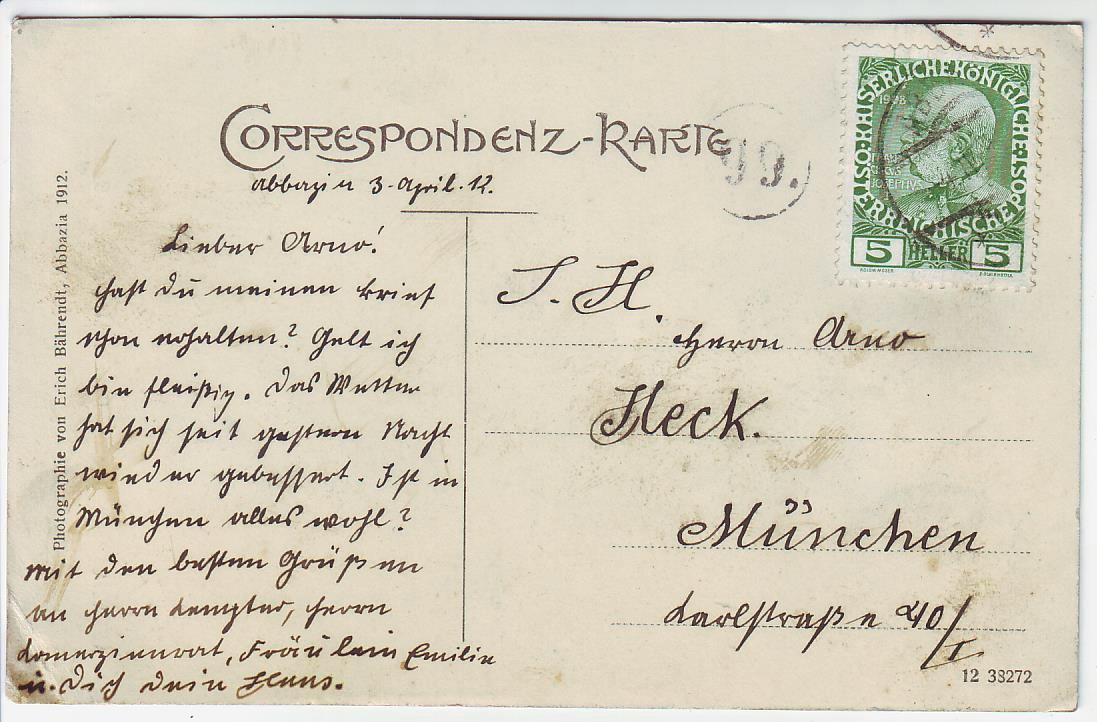 CORRESPONDENZ-KARTE
Abbazia 3. April. 12.
Lieber Arno!
Hast Du meinen Brief
schon erhalten? Gelt ich
bin fleißig. Das Wetter
hat sich seit gestern Nacht
wieder gebessert. Ist in
München alles wohl?
Mit den besten Grüßen
an Herrn Lempter, Herrn
Komerzienrat, Fräulein Emilie
u. Dich Dein Hans.
S. H.
Herrn Arno
Heck.
München
Karlstraße 40/I
12 38272
Photographie von Erich Bährendt, Abbazia 1912.
99.
KAISERLICHEKÖNIGLICHE
ÖSTERREICHISCHE POST
1908
5 HELLER 5